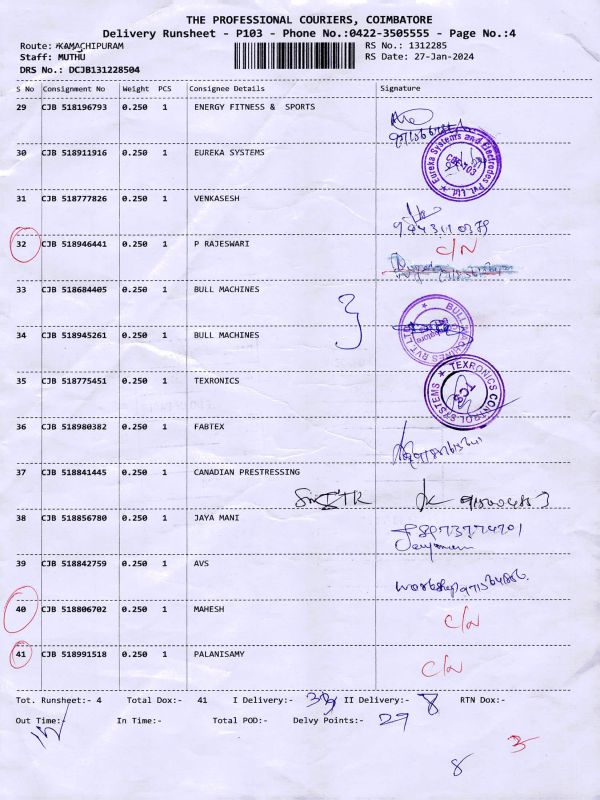 THE PROFESSIONAL COURIERS, COIMBATORE
Delivery Runsheet - P103 - Phone No.:0422-3505555 - Page No.:4
Route: *KAMACHIPURAM
RS No.: 1312285
Staff: MUTHU
RS Date: 27-Jan-2024
DRS No.: DCJB131228504
S No Consignment No Weight PCS Consignee Details Signature
29 CJB 518196793 0.250 1 ENERGY FITNESS & SPORTS
30 CJB 518911916 0.250 1 EUREKA SYSTEMS
Eureka Systems and Electrodes Pvt. Ltd.
31 CJB 518777826 0.250 1 VENKASESH
32 CJB 518946441 0.250 1 P RAJESWARI C/N
33 CJB 518684405 0.250 1 BULL MACHINES
34 CJB 518945261 0.250 1 BULL MACHINES
BULL MACHINES PVT LTD
35 CJB 518775451 0.250 1 TEXRONICS
TEXRONICS CONTROL SYSTEMS
36 CJB 518980382 0.250 1 FABTEX
37 CJB 518841445 0.250 1 CANADIAN PRESTRESSING
38 CJB 518856780 0.250 1 JAYA MANI
39 CJB 518842759 0.250 1 AVS
40 CJB 518806702 0.250 1 MAHESH C/N
41 CJB 518991518 0.250 1 PALANISAMY C/N
Tot. Runsheet:- 4 Total Dox:- 41 I Delivery:- II Delivery:- 8 RTN Dox:-
Out Time:- In Time:- Total POD:- Delvy Points:- 29
3
8